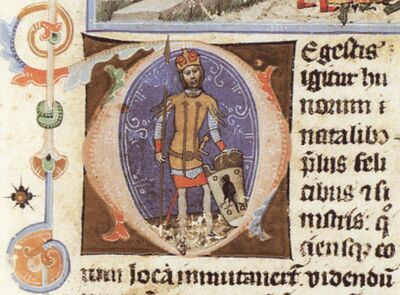 Degestis
igitur hu
norum i
natalibꝰ
p̃lijs feli
cibus ⁊ si
nistris. qͦ
ciensqꝫ eo
rum locũ immutauerĩt. videndũ